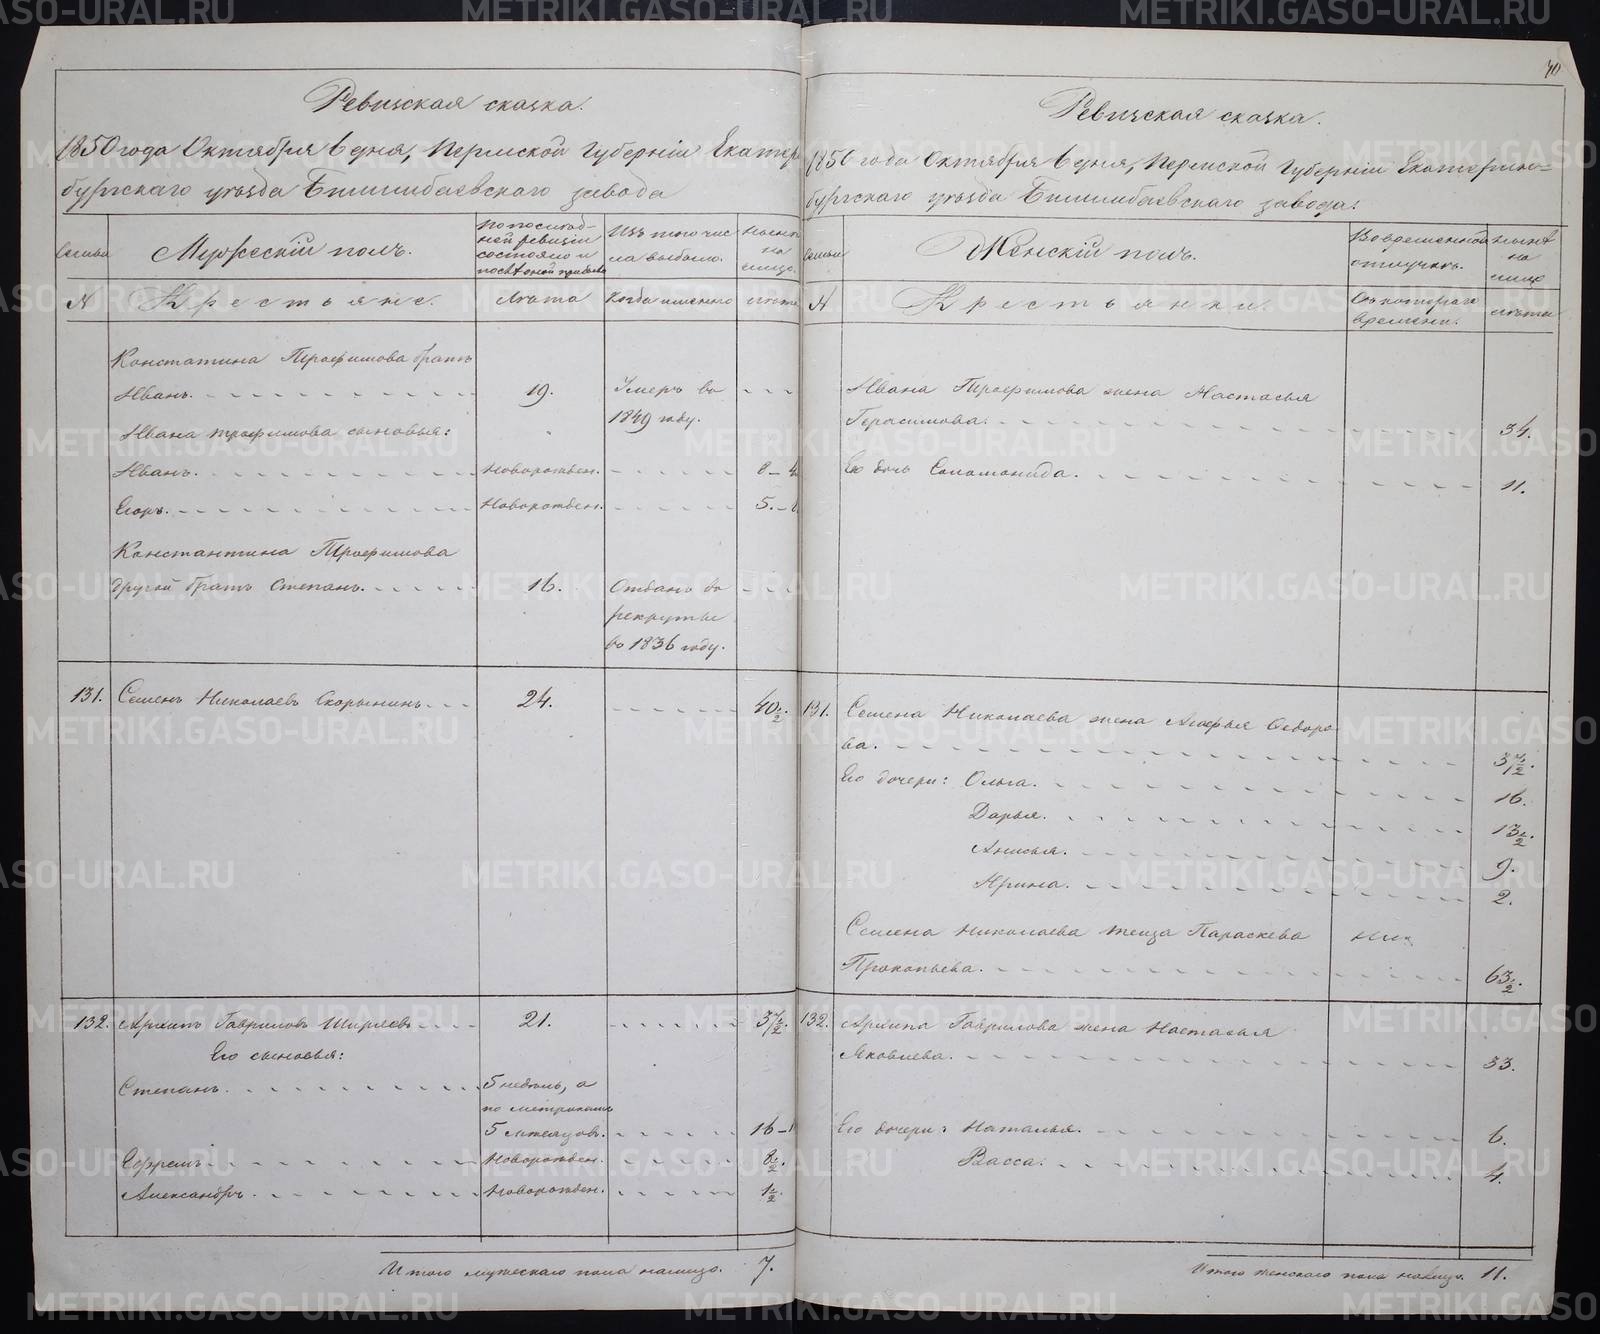 70
Ревизская сказка.
1850 года Октября 6 дня, Пермской Губерніи Екатер
бургскаго уѣзда Билимбаевскаго завода
семьи
Мужескій полъ.
По послѣд-
ней ревизіи
состояло и
послѣ оной прибыло
Изъ того чис
ла выбыло.
Нынѣ
на
лицо.
№
Крестьяне.
Лѣта
Когда именно
лѣта
Константина Трофимова братъ
Иванъ. 19. Умеръ въ
1849 году.
Ивана Трофимова сыновья:
Иванъ. Новорожден. 8-4
Егоръ. Новорожден. 5.-
Константина Трофимова
другой братъ Степанъ. 16. Отданъ въ
рекруты
въ 1836 году.
131. Семенъ Николаевъ Скорынинъ 24. 40½.
132. Архипъ Гавриловъ Ширяевъ 21. 37½.
Его сыновья:
Степанъ. 5 недѣль, а
по метрикамъ
5 мѣсяцов. 16-1
Ефремъ. Новорожден. 8½.
Александръ. Новорожден. 1½.
Итого мужескаго пола налицо. 7.
Ревизская сказка.
1850 года Октября 6 дня, Пермской Губерніи Екатерин-
бургскаго уѣзда Билимбаевскаго завода.
семьи
Женскій полъ.
Во временной
отлучкѣ.
Нынѣ
на
лицо
№
Крестьянки.
Съ котораго
времени.
лѣта
Ивана Трофимова жена Настасья
Герасимова. 34.
Его дочь Соломонида. 11.
131. Семена Николаева жена Марья Ѳедоро
ва. 37½.
Его дочери: Ольга. 16.
Дарья. 13½.
Анисья. 9.
Ирина. 2.
Семена Николаева теща Параскева
Прокопьева. 63½.
132. Архипа Гаврилова жена Настасья
Яковлева. 33.
Его дочери: Наталья. 6.
Васса. 4.
Итого женскаго пола налицо. 11.
METRIKI.GASO-URAL.RU